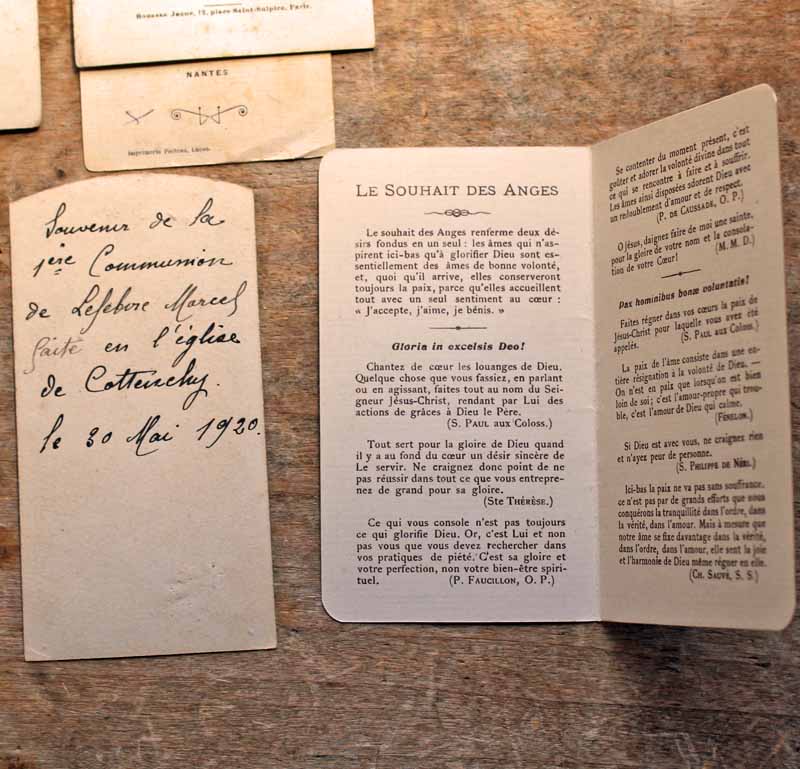 Bouasse Jeune, 12, place Saint-Sulpice, Paris.
NANTES
Imprimerie Pacteau, Luçon.
Souvenir de la
1ère Communion
de Lefebvre Marcel
faite en l'église
de Cottenchy.
le 30 Mai 1920.
LE SOUHAIT DES ANGES
Le souhait des Anges renferme deux dé-
sirs fondus en un seul : les âmes qui n'as-
pirent ici-bas qu'à glorifier Dieu sont es-
sentiellement des âmes de bonne volonté,
et, quoi qu'il arrive, elles conserveront
toujours la paix, parce qu'elles accueillent
tout avec un seul sentiment au cœur :
« J'accepte, j'aime, je bénis. »
Gloria in excelsis Deo!
Chantez de cœur les louanges de Dieu.
Quelque chose que vous fassiez, en parlant
ou en agissant, faites tout au nom du Sei-
gneur Jésus-Christ, rendant par Lui des
actions de grâces à Dieu le Père.
(S. PAUL aux Coloss.)
Tout sert pour la gloire de Dieu quand
il y a au fond du cœur un désir sincère de
Le servir. Ne craignez donc point de ne
pas réussir dans tout ce que vous entrepre-
nez de grand pour sa gloire.
(Ste THÉRÈSE.)
Ce qui vous console n'est pas toujours
ce qui glorifie Dieu. Or, c'est Lui et non
pas vous que vous devez rechercher dans
vos pratiques de piété. C'est sa gloire et
votre perfection, non votre bien-être spiri-
tuel. (P. FAUCILLON, O. P.)
Se contenter du moment présent, c'est
goûter et adorer la volonté divine dans tout
ce qui se rencontre à faire et à souffrir.
Les âmes ainsi disposées adorent Dieu avec
un redoublement d'amour et de respect.
(P. DE CAUSSADE, O. P.)
O Jésus, daignez faire de moi une sainte,
pour la gloire de votre nom et la consola-
tion de votre Cœur! (M. M. D.)
Pax hominibus bonæ voluntatis!
Faites régner dans vos cœurs la paix de
Jésus-Christ pour laquelle vous avez été
appelés. (S. PAUL aux Coloss.)
La paix de l'âme consiste dans une en-
tière résignation à la volonté de Dieu. —
On n'est en paix que lorsqu'on est bien
loin de soi; c'est l'amour-propre qui trou-
ble, c'est l'amour de Dieu qui calme.
(FÉNELON.)
Si Dieu est avec vous, ne craignez rien
et n'ayez peur de personne.
(S. PHILIPPE DE NÉRI.)
Ici-bas la paix ne va pas sans souffrance.
ce n'est pas par de grands efforts que nous
conquérons la tranquillité dans l'ordre, dans
la vérité, dans l'amour. Mais à mesure que
notre âme se fixe davantage dans la vérité,
dans l'ordre, dans l'amour, elle sent la joie
et l'harmonie de Dieu même régner en elle.
(CH. SAUVÉ, S. S.)